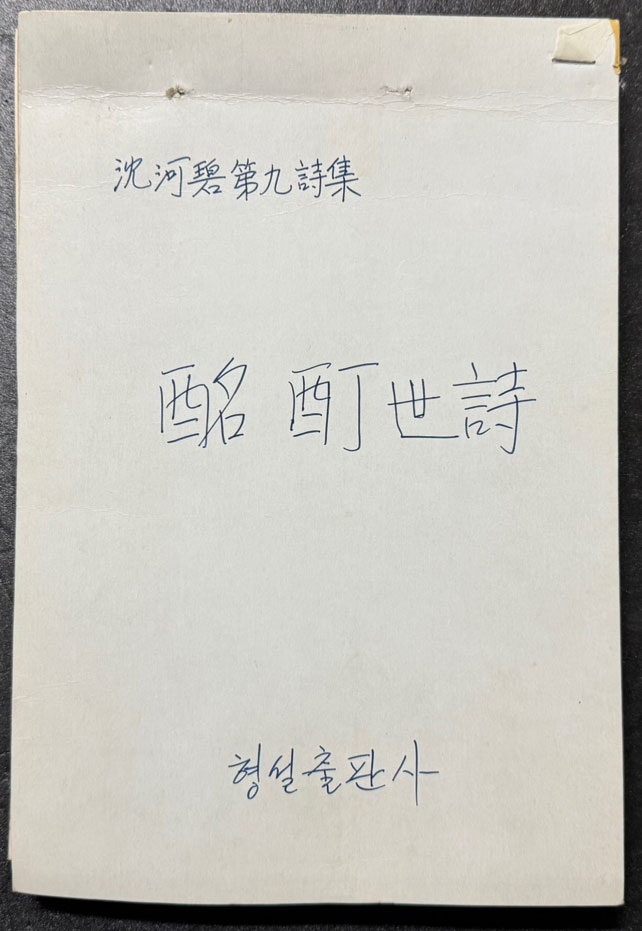 沈河碧第九詩集
酩酊世詩
형설출판사